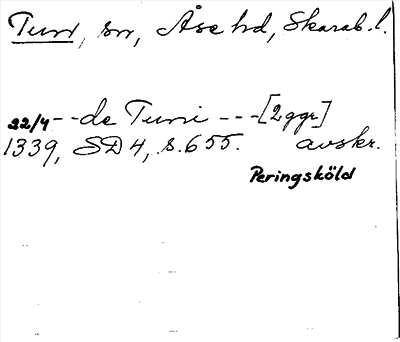 Tun, sn, Åse hd, Skarab. l.
22/4 - - de Tuni - - - [2 ggr]
1339, SD 4, s. 655. avskr.
Peringsköld